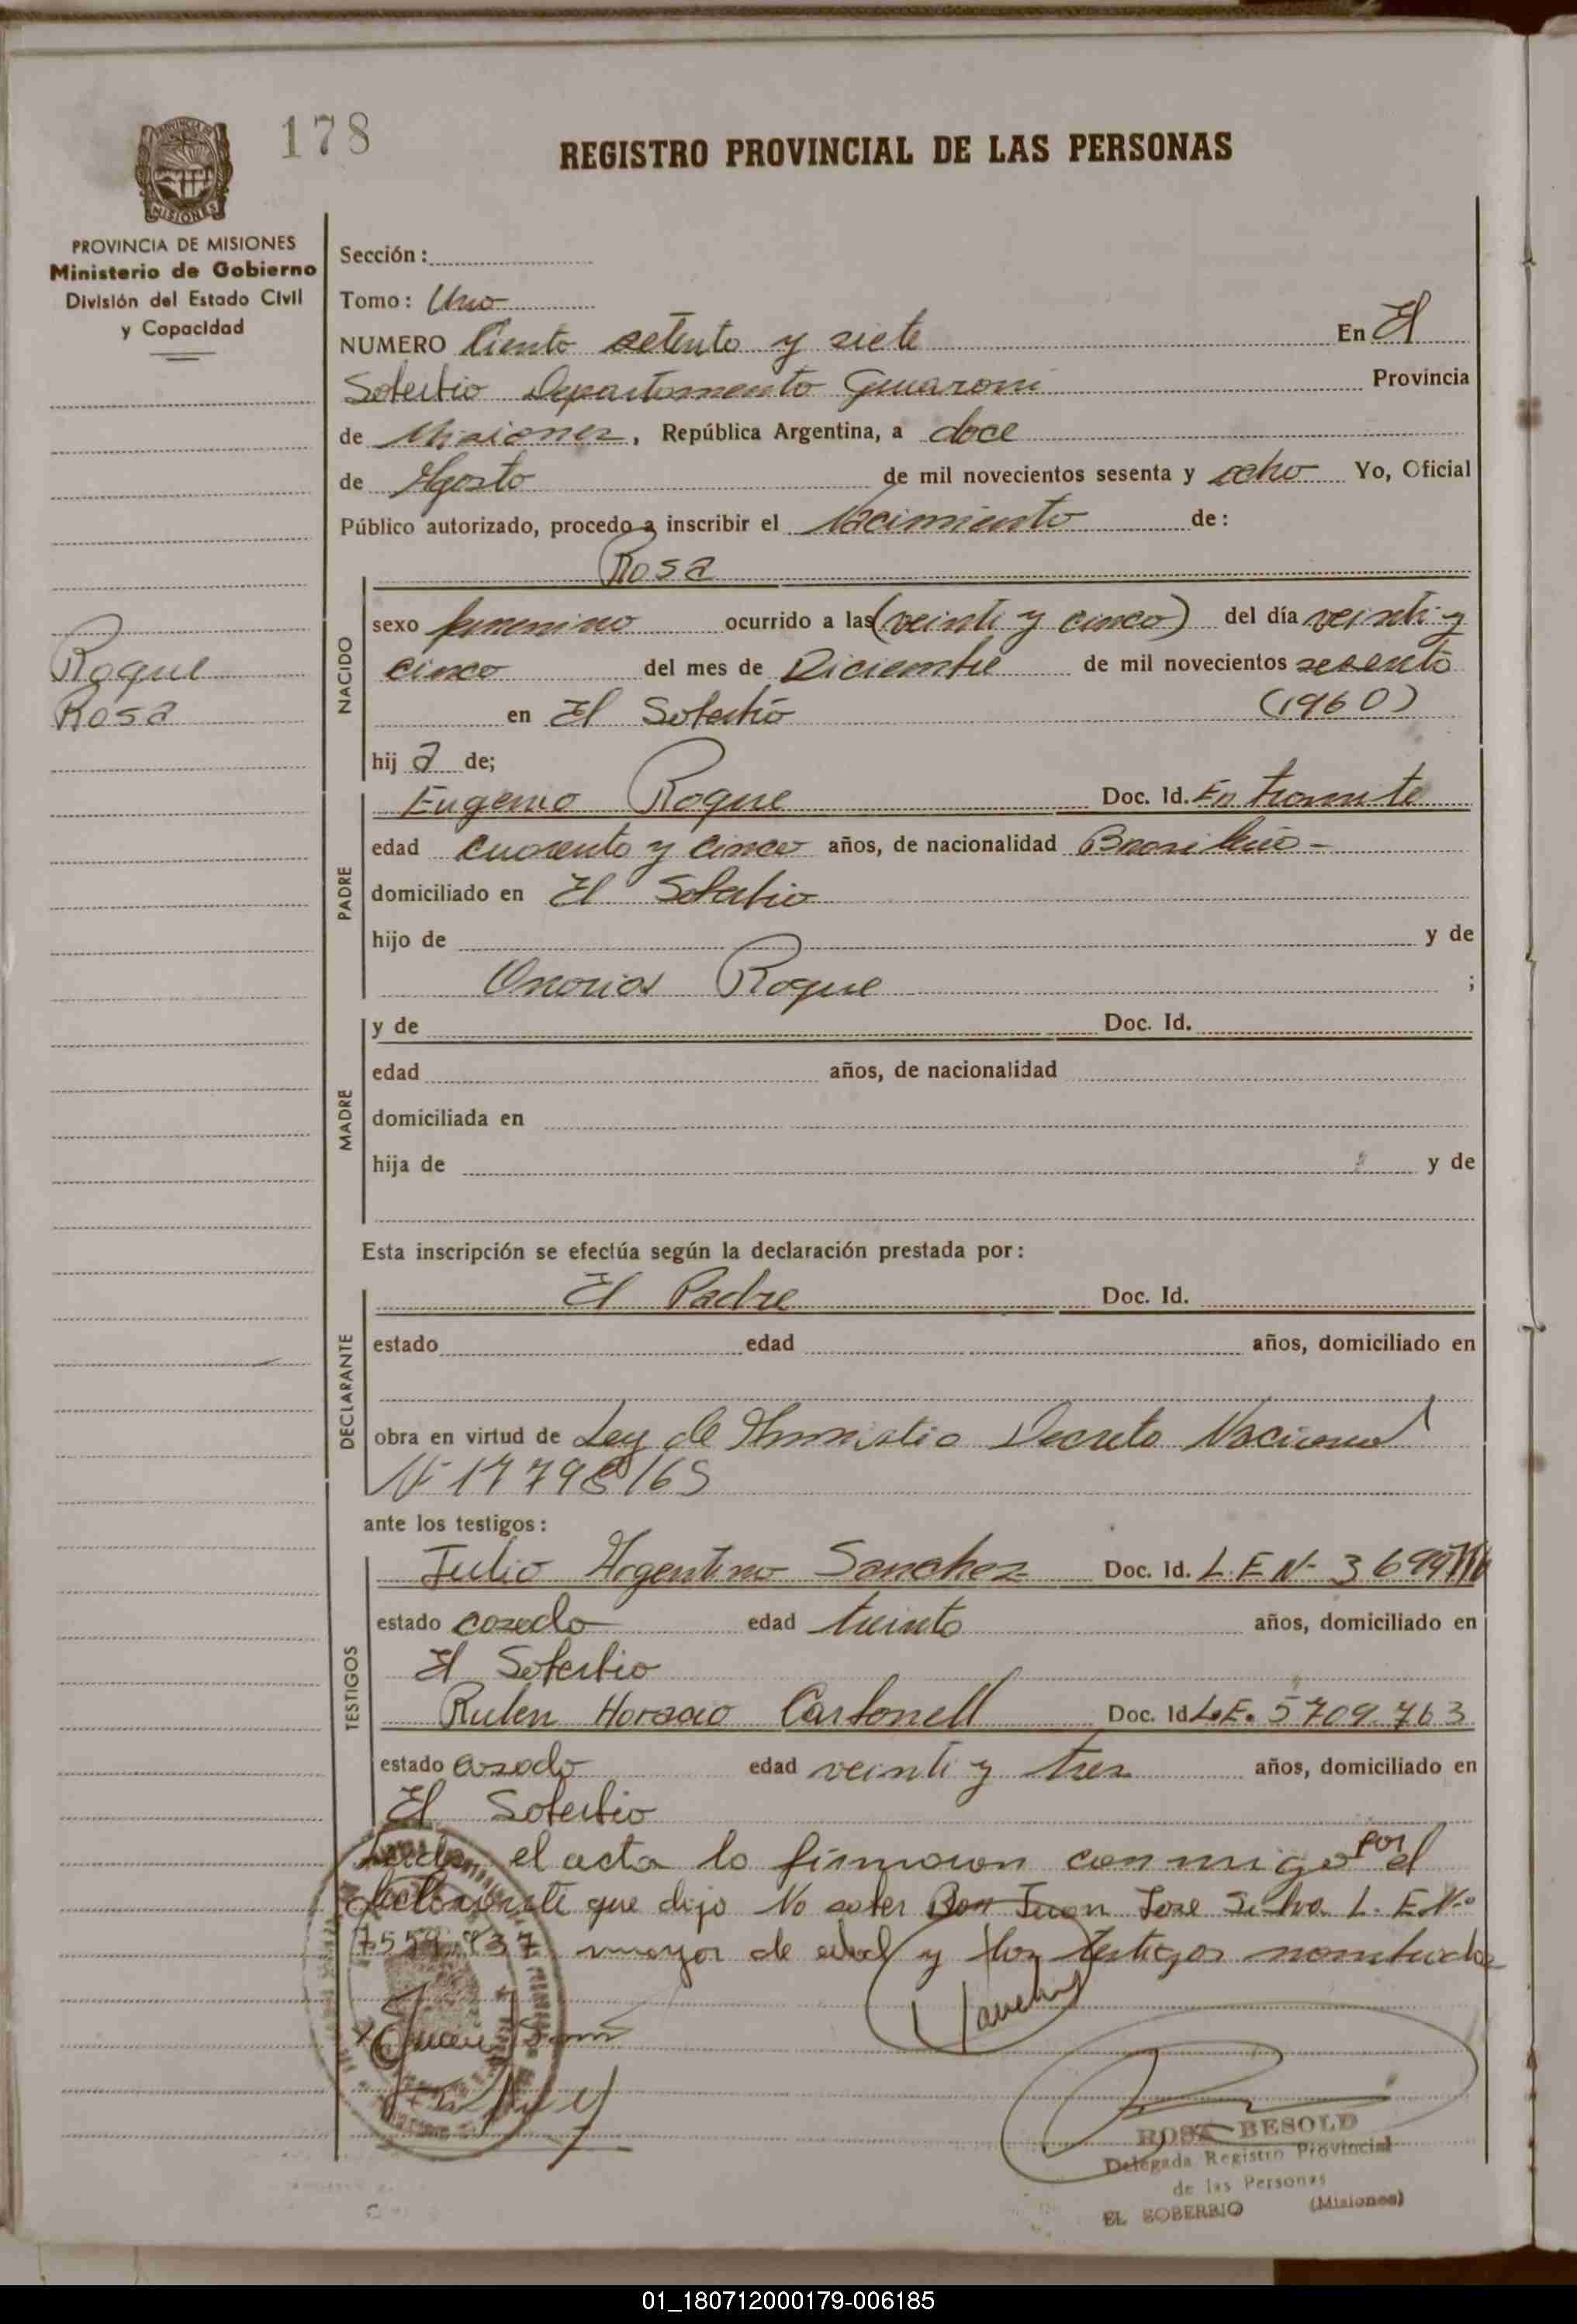 178
REGISTRO PROVINCIAL DE LAS PERSONAS
PROVINCIA DE MISIONES
Ministerio de Gobierno
División del Estado Civil
y Capacidad
Sección:
Tomo: Uno
NUMERO Ciento setenta y siete En El
Soberbio Departamento Guarani Provincia
de Misiones, República Argentina, a doce
de Agosto de mil novecientos sesenta y ocho Yo, Oficial
Público autorizado, procedo a inscribir el Nacimiento de:
Rosa
NACIDO
sexo femenino ocurrido a las (veinti y cinco) del día veinti y
Roque
Rosa
cinco del mes de Diciembre de mil novecientos sesenta
en El Soberbio (1960)
hij a de;
PADRE
Eugenio Roque Doc. Id. En tramite
edad cuarenta y cinco años, de nacionalidad Brasileño -
domiciliado en El Soberbio
hijo de y de
Onorios Roque ;
MADRE
y de Doc. Id.
edad años, de nacionalidad
domiciliada en
hija de y de
Esta inscripción se efectúa según la declaración prestada por:
DECLARANTE
El Padre Doc. Id.
estado edad años, domiciliado en
obra en virtud de Ley de Amnistia Decreto Nacional
Nº 17798/65
ante los testigos:
TESTIGOS
Julio Argentino Sanchez Doc. Id. L.E Nº
estado casado edad treinta años, domiciliado en
El Soberbio
Ruben Horacio Carbonell Doc. Id L.E. 5709.763
estado casado edad veinti y tres años, domiciliado en
El Soberbio
Leida el acta lo firmaron conmigo por el
declarante que dijo No saber Don Juan Jose Silva L. E. Nº
7559.937 mayor de edad y los testigos nombrados
ROSA BESOLD
Delegada Registro Provincial
de las Personas
EL SOBERBIO (Misiones)
01_180712000179-006185